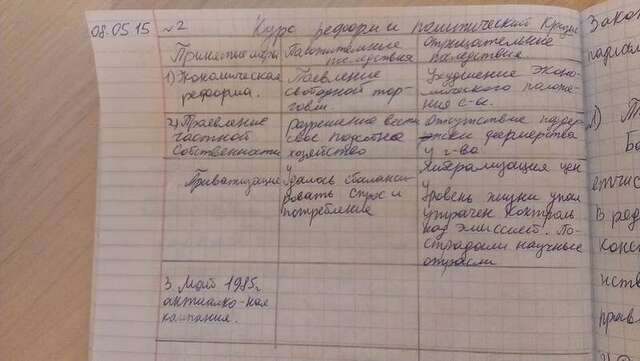 08.05.15 №2 Курс реформ и политический кризис
Принятые меры Положительные последствия Отрицательные последствия
1) Экономическая реформа. Появление свободной торговли Ухудшение экономического положения с-ы.
2) Появление частной собственности разрешение вести свое подсобное хозяйство Отсутствие поддержки фермерства у г-ва
Приватизация Удалось сбалансировать спрос и потребление Либерализация цен Уровень жизни упал утрачен контроль над эмиссией. Пострадали научные отрасли
3 Май 1985г. антиалко-ная кампания.
Зако